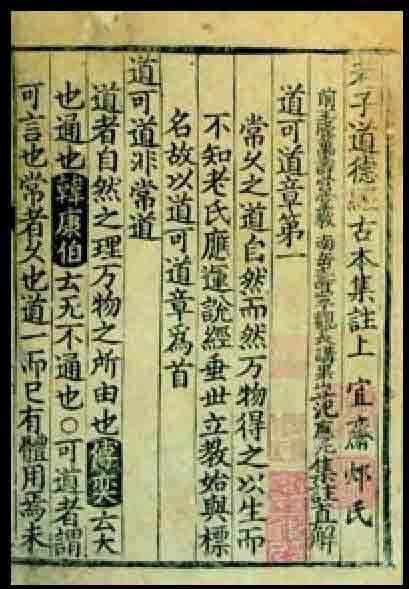 老子道德經古本集註上 宜齋 氏
前玉隆萬壽宮掌教 南嶽壽寧觀長講果山范應元集註直解
道可道章第一
常久之道自然而然万物得之以生而
不知老氏應運說經垂世立教始與標
名故以道可道章爲首
道可道非常道
道者自然之理万物之所由也傅奕云大
也通也韓康伯云无不通也○可道者謂
可言也常者久也道一而已有體用焉未